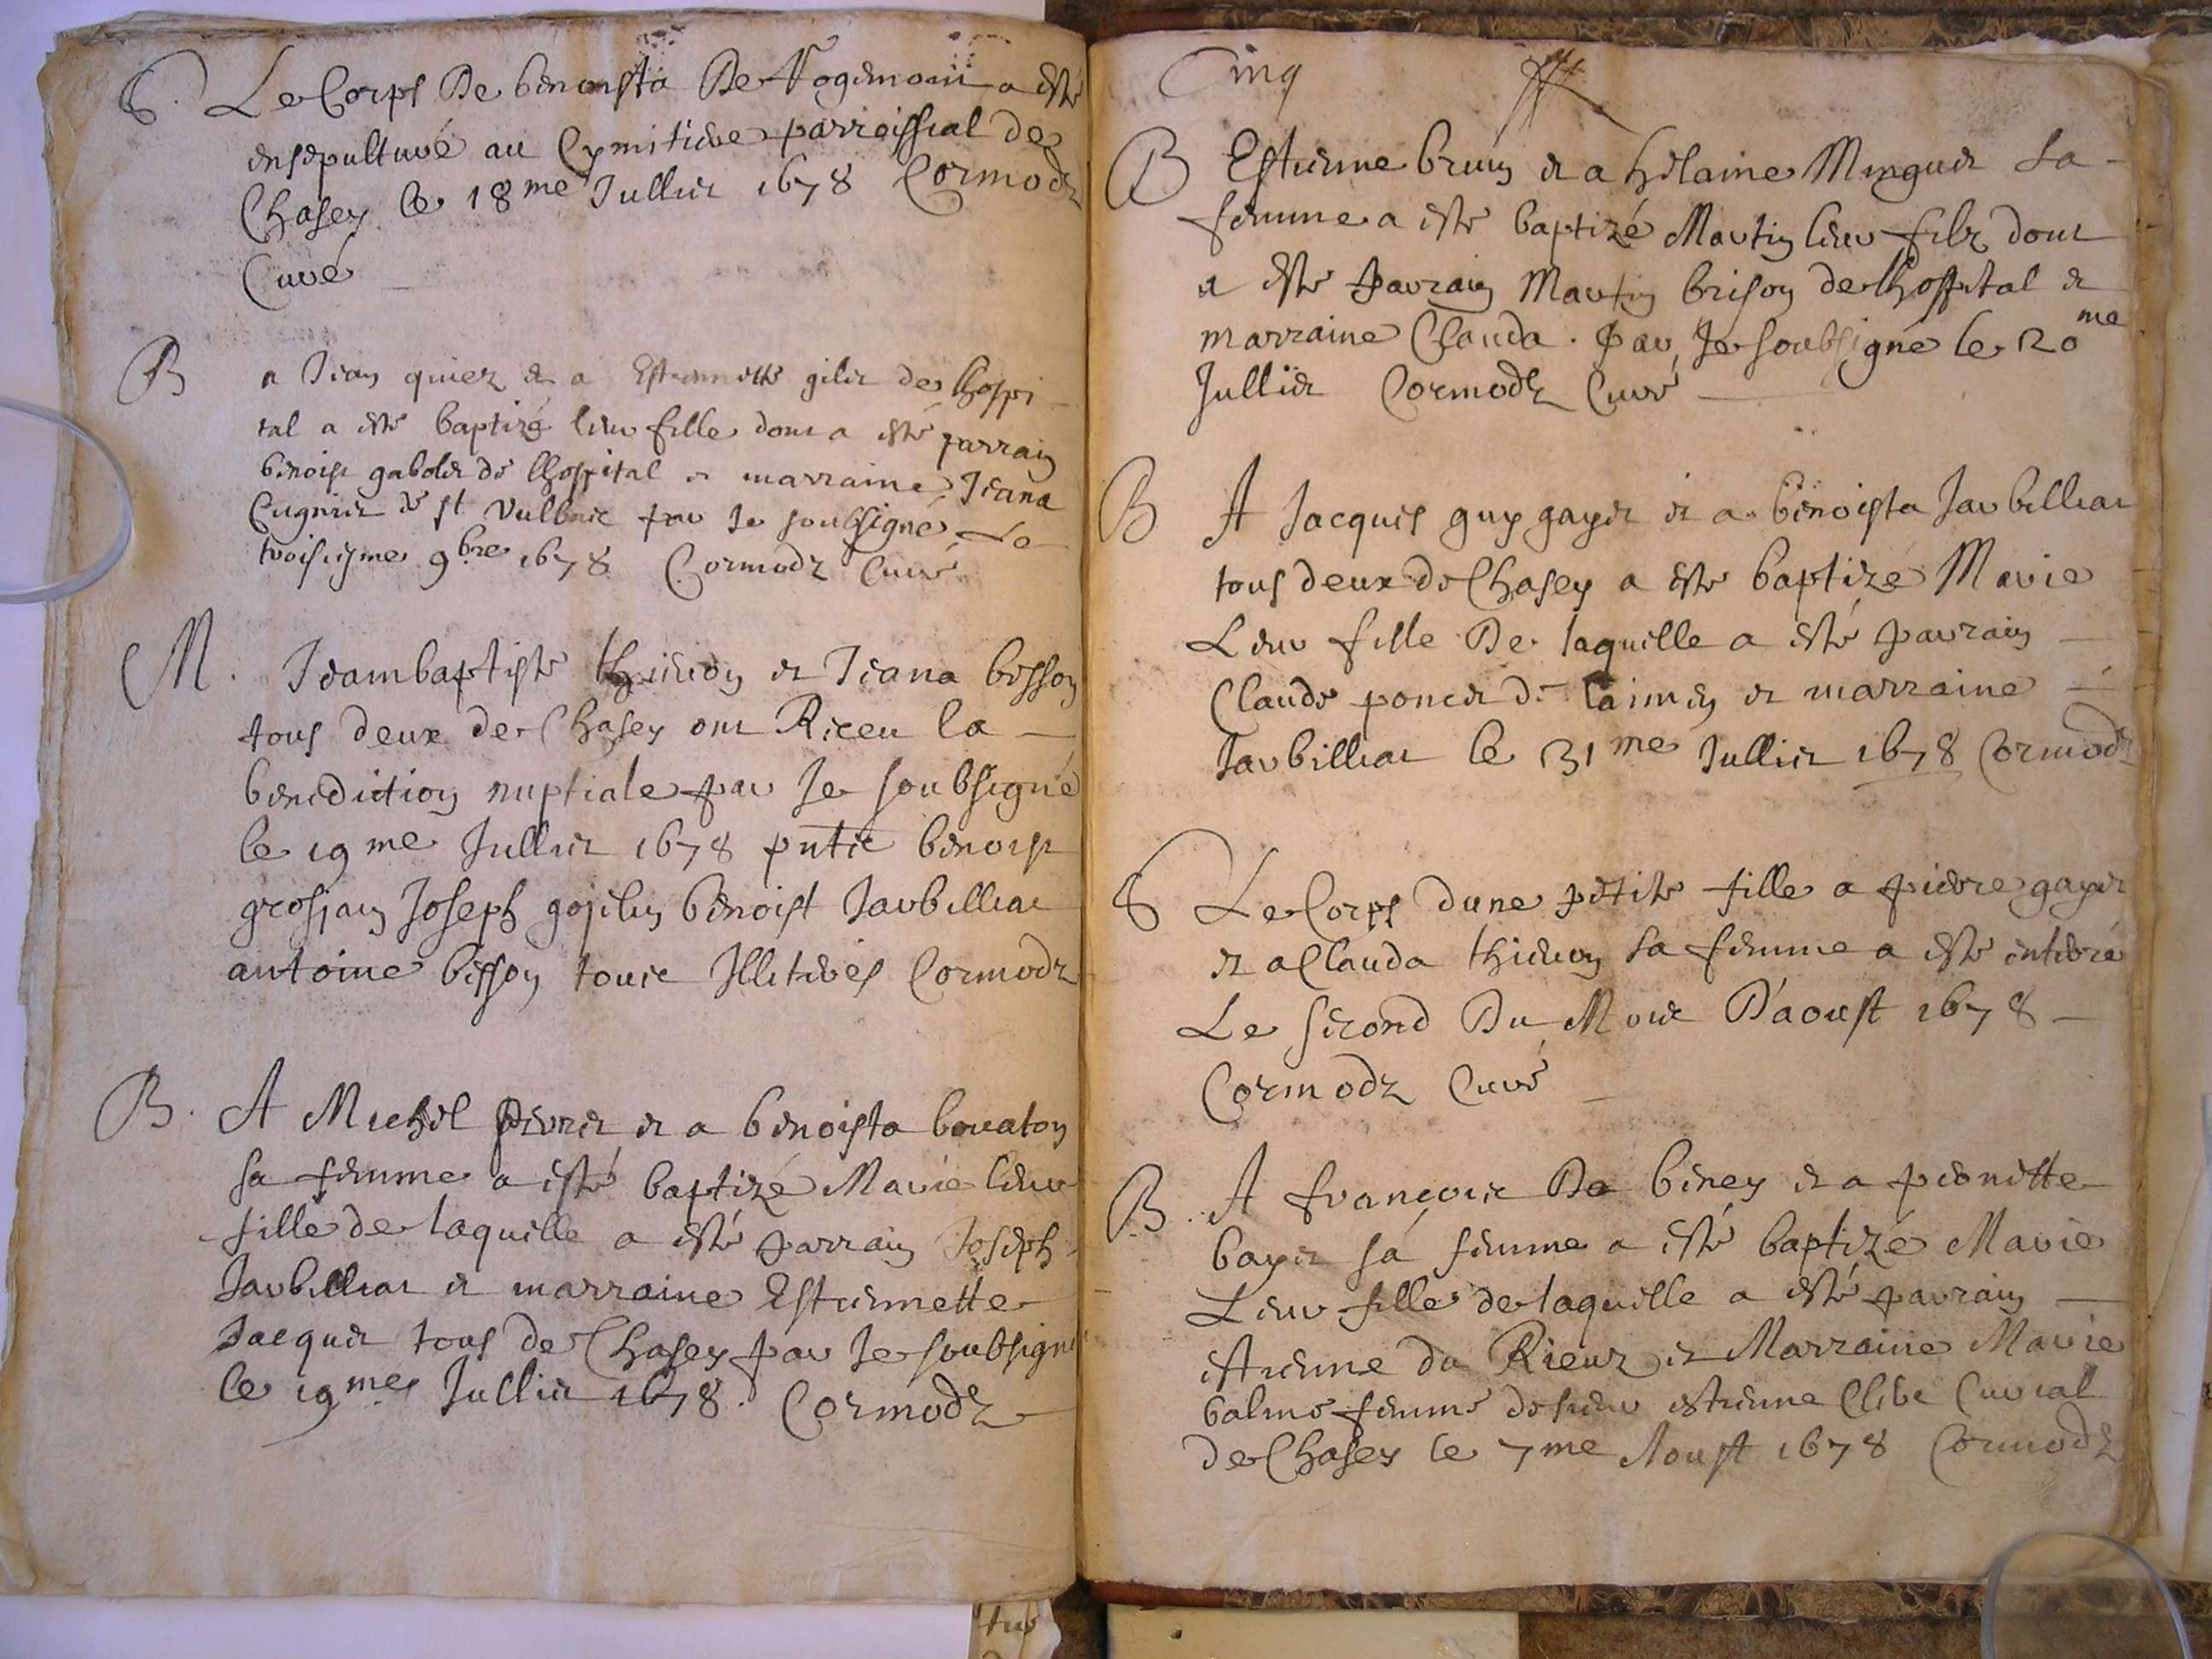 S. Le Corps De benoista De Vogemoin a esté
ensepulturé au Cymitiere parroissial de
Chasey le 18me Julliet 1678 Cormodz
Curé
B a Jean quiez et a Estiennette gilet de lhospi
tal a esté baptizé leur fille dont a esté parrain
benoist gabolet de lhospital et marraine Jeana
Cugniet de st Vulbaie par Je soubsigné Le
troisiesme 9bre 1678 Cormodz Curé
M. Jeambaptiste thievon et Jeana besson
tous deux de Chasey ont Receu la
benediction nuptiale par Je soubsigné
le 19me Julliet 1678 pntie benoist
grosjan Joseph gojelin benoist Jarbilliat
antoine besson touie Illiteres Cormodz
B. A Michel pevret et a benoista bovaton
sa femme a esté baptizé Marie leur
fille de laquelle a esté parrain Joseph
Jarbilliat et marraine Estiennette
Jacquet tous de Chasey par Je soubsigné
le 19mes Julliet 1678. Cormodz
Cinq
B Estienne brun et a helaine Minguet sa
femme a esté baptizé Martin leur filz dont
a esté parrain Martin brison de lhospital et
marraine Clauda. par Je soubsigné le 20me
Julliet Cormodz Curé
B A Jacques guy gayet et a benoista Jarbilliat
tous deux de Chasey a esté baptizé Marie
Leur fille De laquelle a esté parrain
Claude poncet de laimen et marraine
Jarbilliat le 31me Julliet 1678 Cormodz
S Le Corps dune petite fille a pierre gayet
et a Clauda thievon sa femme a esté enterré
Le second Du Moie D'aoust 1678
Cormodz Curé
B. A françoie De beney et a pernette
bayet sa femme a esté baptizé Marie
Leur fille de laquelle a esté parrain
estienne du Rieux et Marraine Marie
balme femme de sieur estienne Clere Curial
de Chasey le 7me Aoust 1678 Cormodz